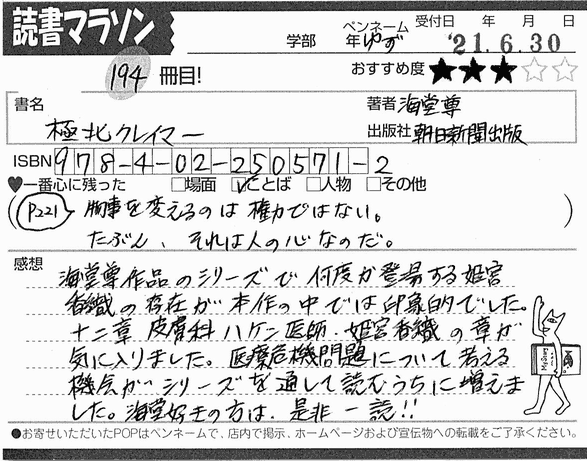 読書マラソン
学部 年 ペンネーム ゆず 受付日 年 月 日
'21.6.30
194 冊目!
おすすめ度 ★★★☆☆
書名 極北クレイマー
著者 海堂尊
出版社 朝日新聞出版
ISBN 978-4-02-250571-2
♥一番心に残った □場面 ☑ことば □人物 □その他
(P221) 物事を変えるのは権力ではない。
たぶん、それは人の心なのだ。
感想
海堂尊作品のシリーズで何度か登場する姫宮
香織の存在が本作の中では印象的でした。
十二章 皮膚科ハケン医師・姫宮香織の章が
気に入りました。医療危機問題について考える
機会がシリーズを通して読むうちに増えま
した。海堂好きの方は、是非一読!!
●お寄せいただいたPOPはペンネームで、店内で掲示、ホームページおよび宣伝物への転載をご了承ください。